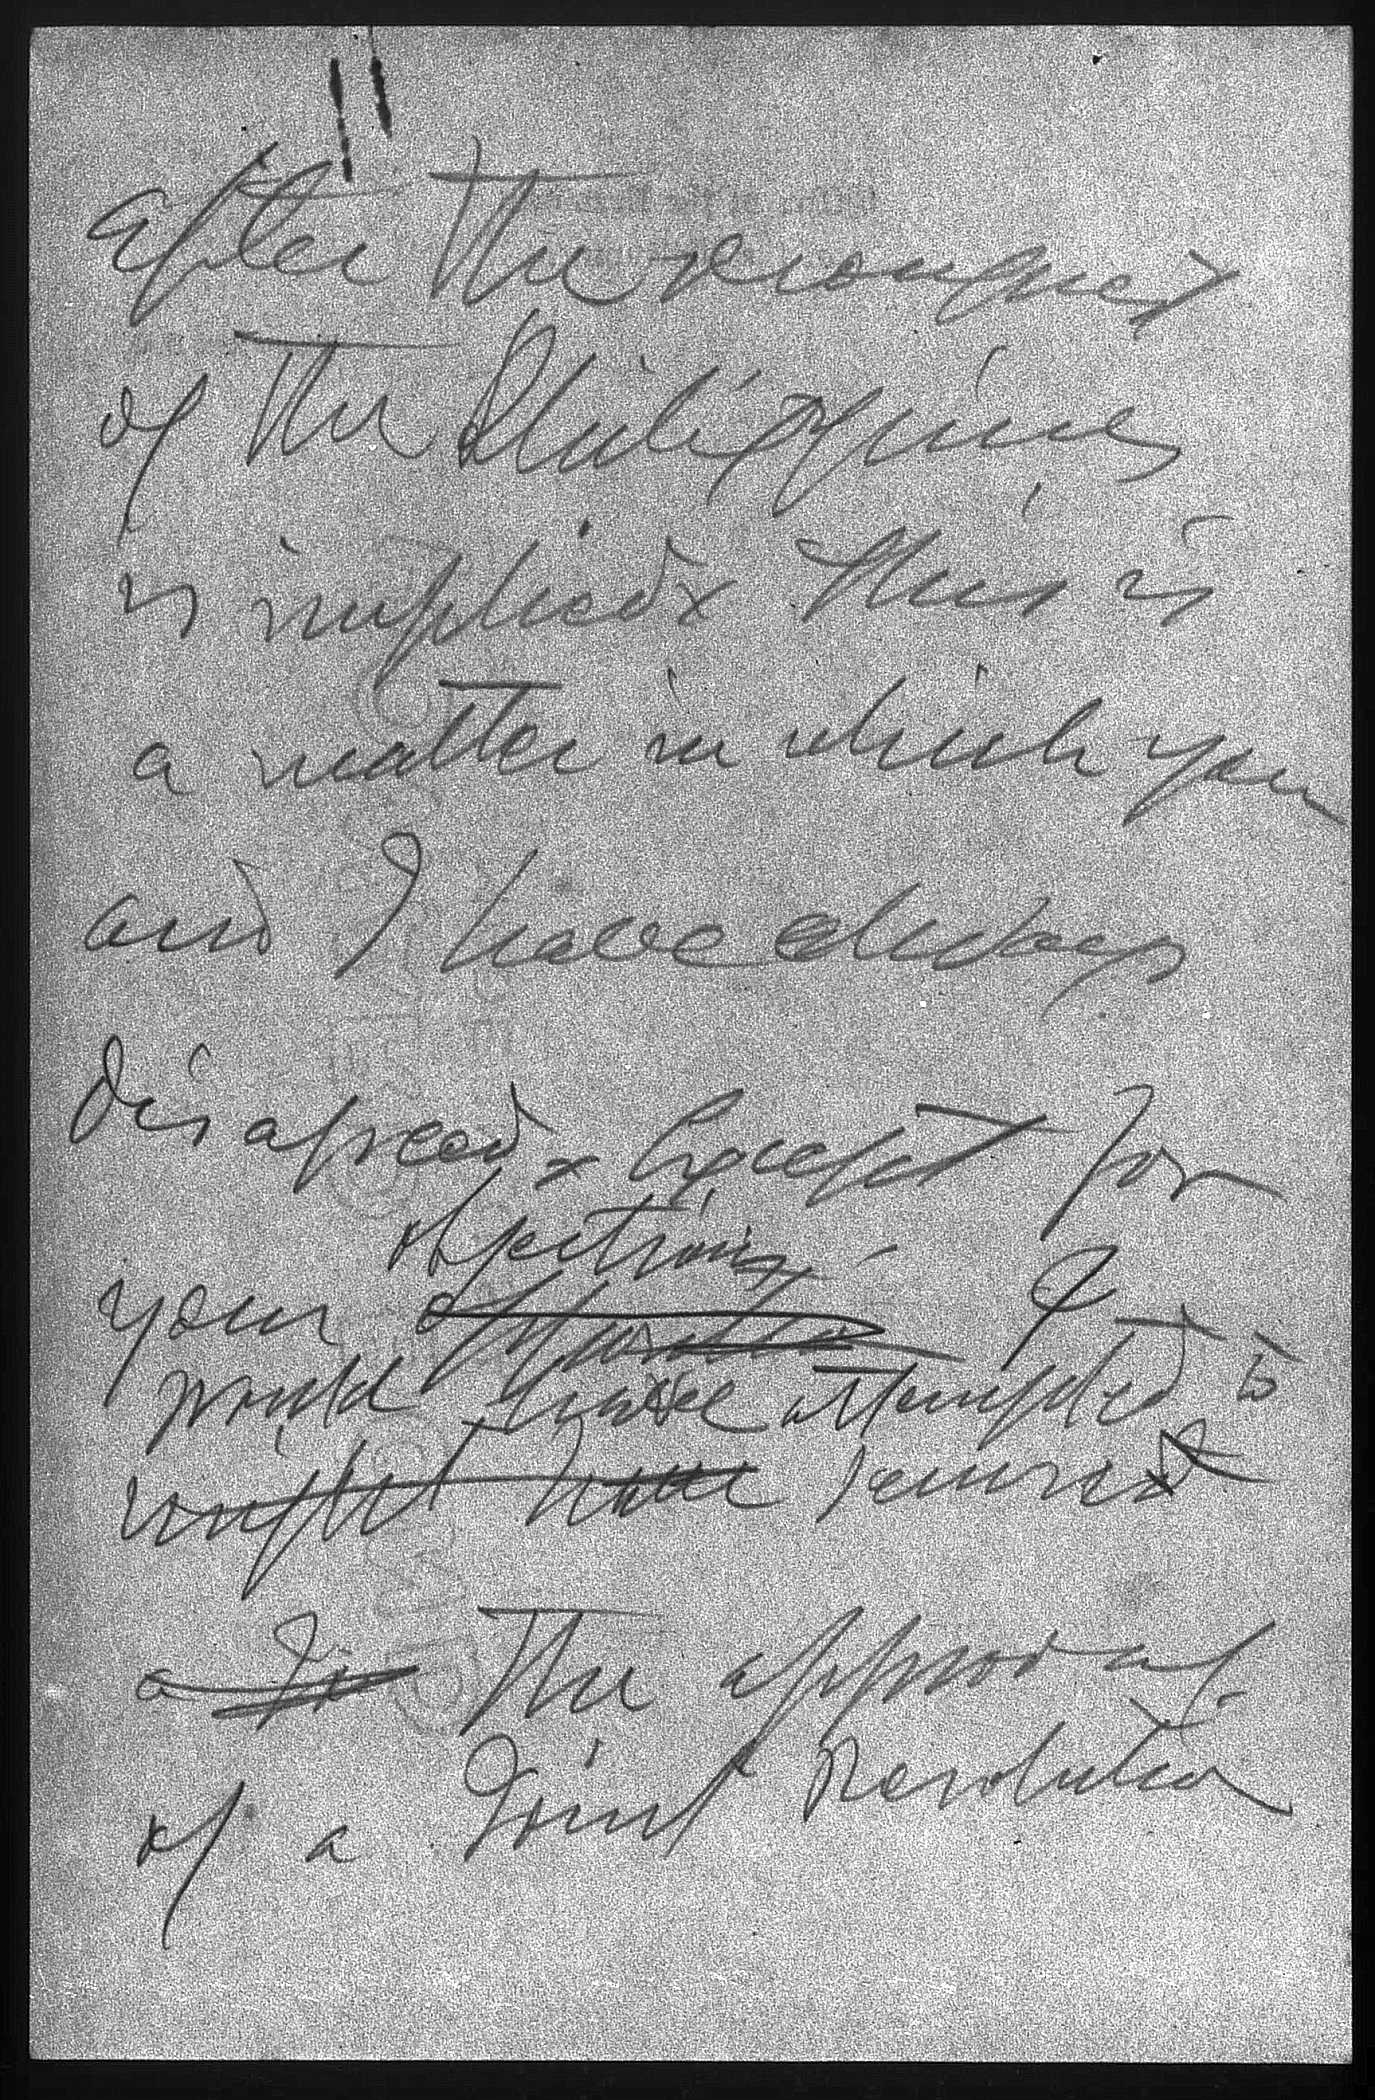 after the reconquest
of the Philippines
is implied x This is
a matter in which you
and I have always
disagreed x Except for
objections
your I
would have attempted to
might have secured
a the approval
of a Joint Resolution